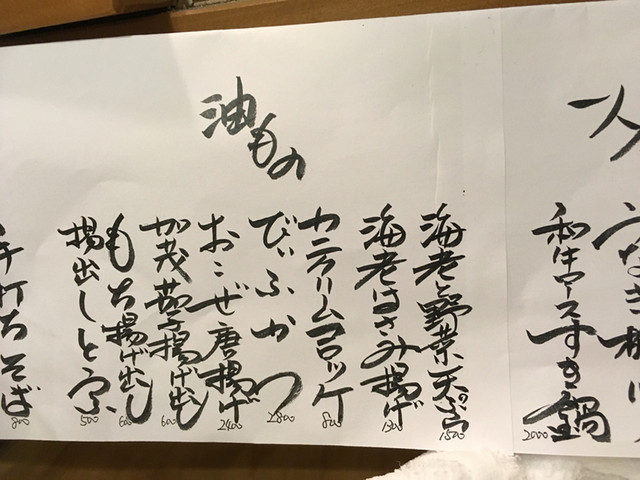 和牛ロースすき鍋
2000
油もの
海老と野菜天ぷら
1500
海老はさみ揚げ
カニクリームコロッケ
800
びぃふかつ
2800
おこぜ唐揚げ
2400
加茂茄子揚げ出し
600
もち揚げ出し
600
揚出しとふ
500
手打ちそば
800